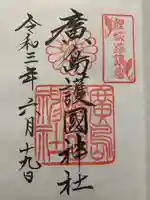 廣島護國神社
令和三年六月十九日
廣島
護國
神社